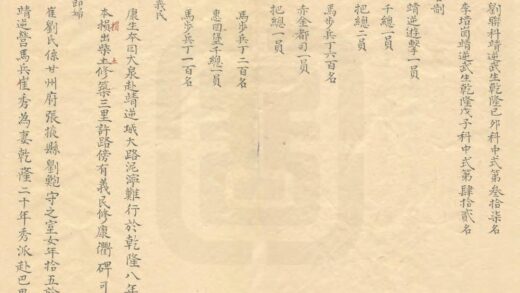 劉聯科靖逆武生乾隆己卯科中式第叁拾柒名
李培崗靖逆武生乾隆戊子科中式第肆拾貳名
制
靖逆遊擊一員
千總一員
把總二員
馬步兵丁六百名
赤金都司一員
把總一員
馬步兵丁二百名
惠回堡千總一員
馬步兵丁一百名
義民
康生卒因大泉赴靖逆城大路泥濘難行於乾隆八年
本損出柴土修築三里許路傍有義民修康衢碑可
損 土
節婦
崔劉氏係甘州府張掖縣劉 守之室女年十五
靖逆營馬兵崔秀為妻乾隆二十年秀派赴巴里